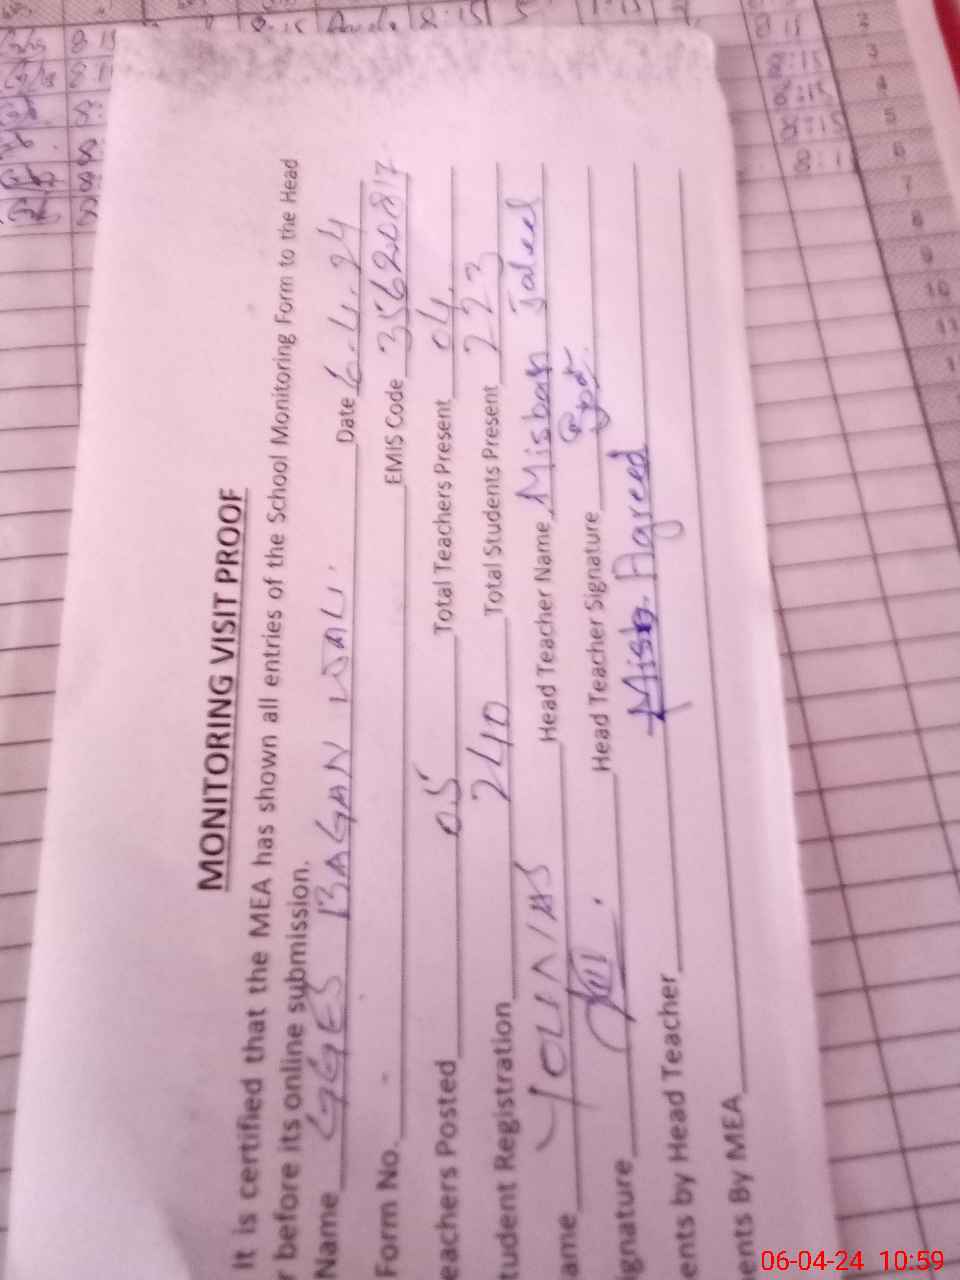 MONITORING VISIT PROOF
It is certified that the MEA has shown all entries of the School Monitoring Form to the Head
r before its online submission.
Name GGES BAGAN WALI. Date 6.4.24
Form No. - EMIS Code 35620817
eachers Posted 05 Total Teachers Present 04
tudent Registration 240 Total Students Present 223
ame YOUNAS Head Teacher Name Misbah Jaleel
ignature Head Teacher Signature
ents by Head Teacher Agreed
ents By MEA
8:15
8:15
8:15
8:15
2
3
4
5
6
7
8
9
10
11
06-04-24 10:59